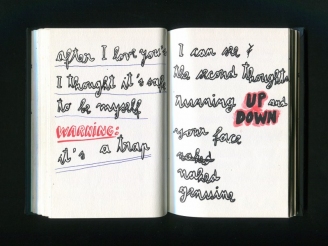 after I love you's
I thought it's safe
to be myself
WARNING:
it's a trap
I can see &
the second thoughts
running UP and
DOWN
your face
naked
naked
genuine